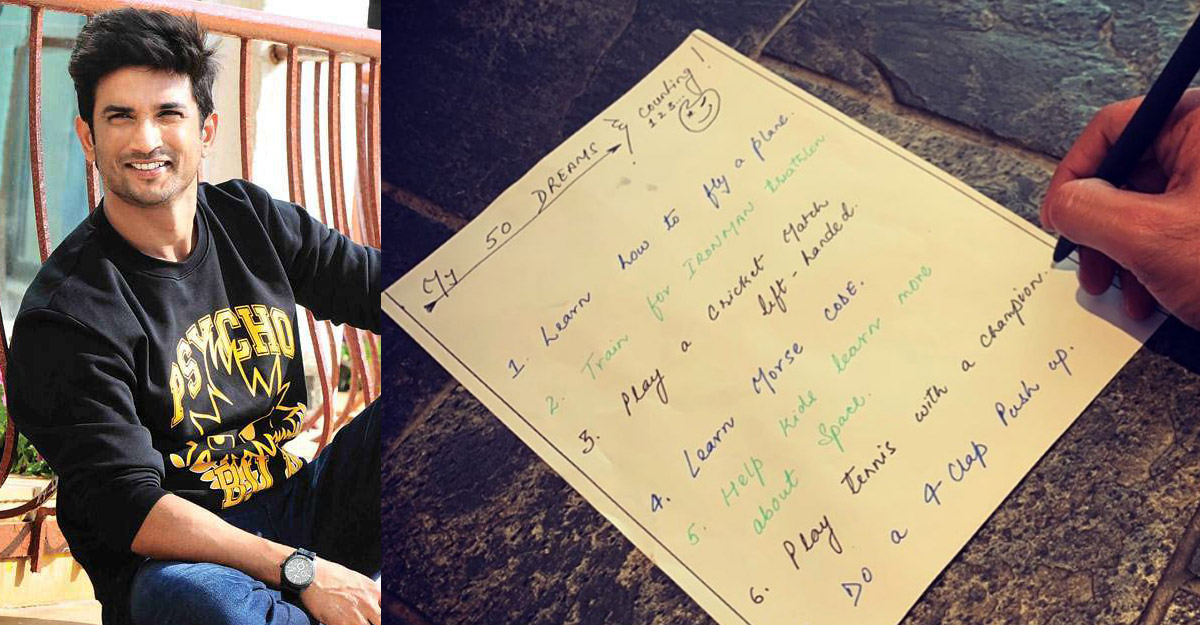 PSYCHO
BAIT
My 50 DREAMS & Counting!
1 2 3...
1. Learn how to fly a plane.
2. Train for IRONMAN triathlon
3. Play a cricket Match
left-handed.
4. Learn Morse CODE.
5. Help kids learn more
about Space.
6. Play tennis with a champion.
Do a 4 Clap Push up.